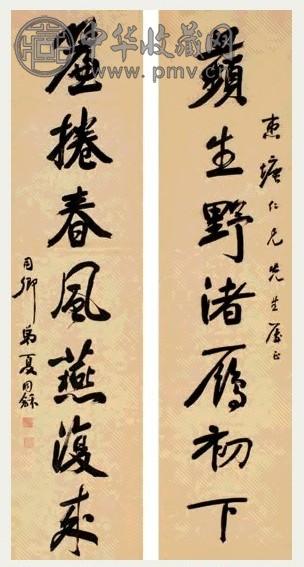 中华收藏网
www.pmv.cn
惠塘仁兄先生正
蘋生野渚鴈初下
簾捲春風燕復來
用卿弟夏同龢